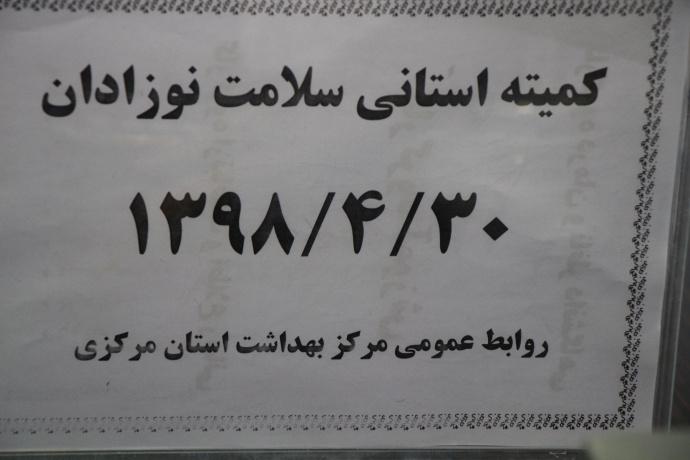 کمیته استانی سلامت نوزادان
۱۳۹۸/۴/۳۰
روابط عمومی مرکز بهداشت استان مرکزی